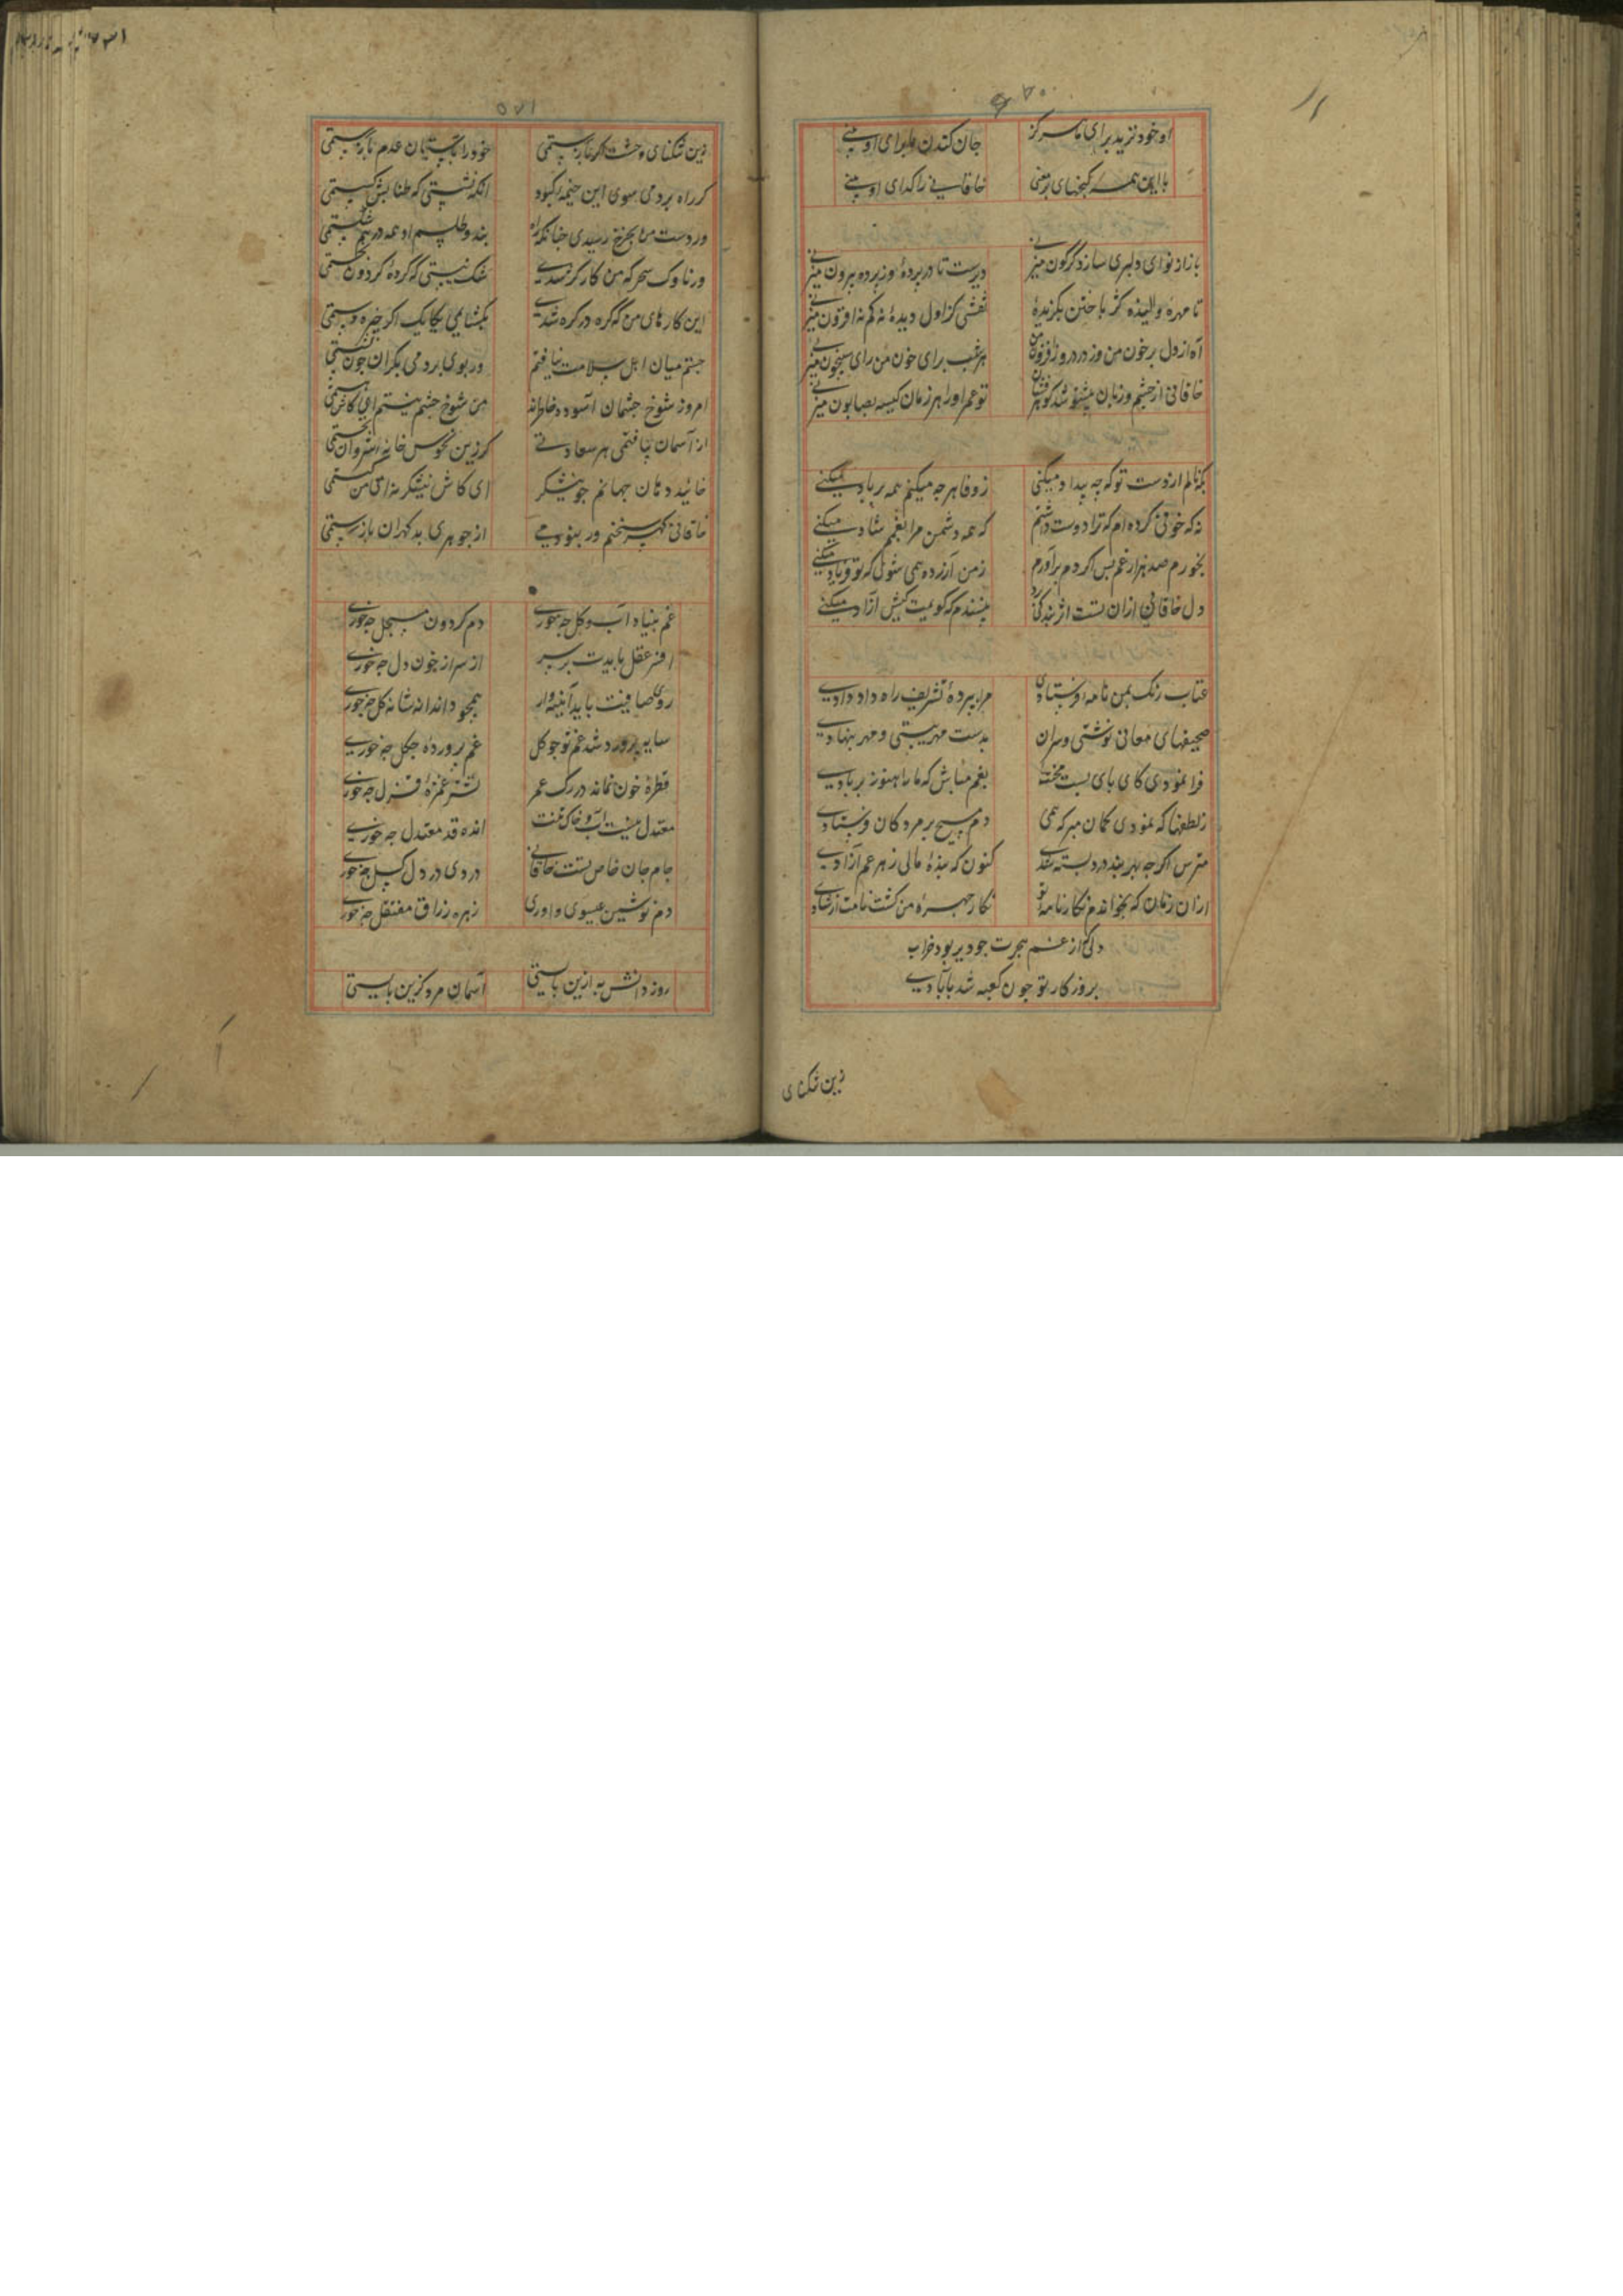 ۵۷۰
او خود نزید برای ما هرگز جان کندن ما برای او بینی
با این همه گنجهای پر معنی خاقانی را گدای او بینی
باز از نوای دلبری سازی دگرگون میزنی دیریست تا در پردهٔ وز پرده بیرون میزنی
تا مهرهٔ کژ باختن نقشی کز اول دیدهٔ نه کم نه افزون میزنی
آه از دل پر خون من وز درد روز افزون من هر شب برای خون من رای شبیخون میزنی
خاقانی از چشم و زبان شد گوهرفشان تو عمر او را هر زمان کیسه بصابون میزنی
بکه نالم از دست تو که چه بیداد میکنی ز وفا هر چه میکنم همه بر باد میکنی
نه که خونی کرده ام که ترا دوست داشتم که همه دشمن مرا بغمم شاد میکنی
بخورم صد هزار غم پس اگر دم برآورم ز من آزرده می شوی که تو فریاد میکنی
دل خاقانی ازان تست از بندگی نپسندم که گویمت کش آزاد میکنی
عتاب رنگ بمن نامه فرستادی مرا بپردهٔ تشریف راه داد دادی
صحیفهای معانی نوشتی و سران بدست مهر ببستی و مهر بنهادی
فرا نمودی کای پای بست محنت بغم مباش که ما را هنوز بر یادی
ز لطفها که نمودی گمان مبر که همی دم مسیح بر مردگان فرستادی
مترس اگر چه بهر بند درد بسته شدی کنون که بندهٔ مائی ز هر غم آزادی
ازان زمان که بخواندم نگار نامهٔ تو نگار چهرهٔ من گشت نامت از شادی
دلی که از غم هجرت چو دیر بود خراب
بروزگار تو چون کعبه شد بآبادی
زین تنگنای
۵۷۱
زین تنگنای وحشت اگر باز رستمی خود را بآستان عدم باز بستمی
گر راه بردمی سوی این خیمهٔ کبود آنگه نشستمی که طنابش گسستمی
ور دست من بچرخ رسیدی چنانکه آه بند و طلسم او همه درهم شکستمی
ور ناوک سحرگه من کارگر شدی شک نیستی که گردهٔ گردون بخستمی
این کارهای من که گره در گره شدی بگشایمی یکایک اگر چیره دستمی
جستم میان اهل سلامت نیافتم ور بوی بردمی بکران چون نشستمی
امروز شوخ چشمان آسوده خاطراند من شوخ چشم نیستم ای کاش هستمی
از آسمان بیافتمی هر سعادتی گر زین نحوس خانهٔ شروان بجستمی
خائید دندان جهانم چو نیشکر ای کاش نیشکر نه امی من کبستمی
خاقانی گهر سخنم ور نبودمی از جوهری بد گهران باز رستمی
غم بنیاد آب و گل چه خوری دم گردون مستحل چه خوری
افسر عقل بایدت بر سر از سر از خون دل چه خوری
روی صافیت باید آینه وار همچو دندانه شانه گل چه خوری
سایه پرورد شد غم تو چو گل غم پروردهٔ چگل چه خوری
قطرهٔ خون نماند در رگ عمر نشتر غمزهٔ قزل چه خوری
معتدل نیست آب و خاک تنت انده قد معتدل چه خوری
جام جان خاص تست خاقانی دردی درد دل گسل چه خوری
دم نوشین عیسوی داری زهره زراق مفتعل چه خوری
روز دانش به ازین بایستی آسمان مرد گزین بایستی